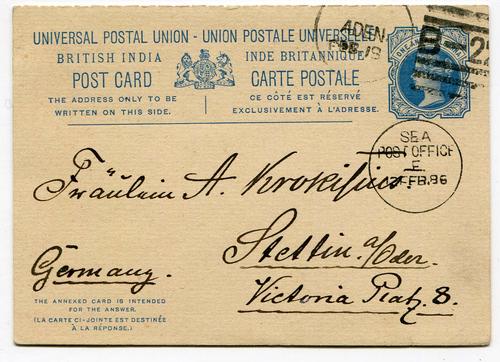 UNIVERSAL POSTAL UNION - UNION POSTALE UNIVERSELLE
BRITISH INDIA
INDE BRITANNIQUE
POST CARD
CARTE POSTALE
THE ADDRESS ONLY TO BE
WRITTEN ON THIS SIDE.
CE CÔTÉ EST RÉSERVÉ
EXCLUSIVEMENT À L'ADRESSE.
ADEN
FEB. 19
B-22
SEA
POST OFFICE
E
FEB.86
Fräulein A.
Stettin a/Oder.
Germany.
Victoria Platz 8.
THE ANNEXED CARD IS INTENDED
FOR THE ANSWER.
(LA CARTE CI-JOINTE EST DESTINÉE
À LA RÉPONSE.)